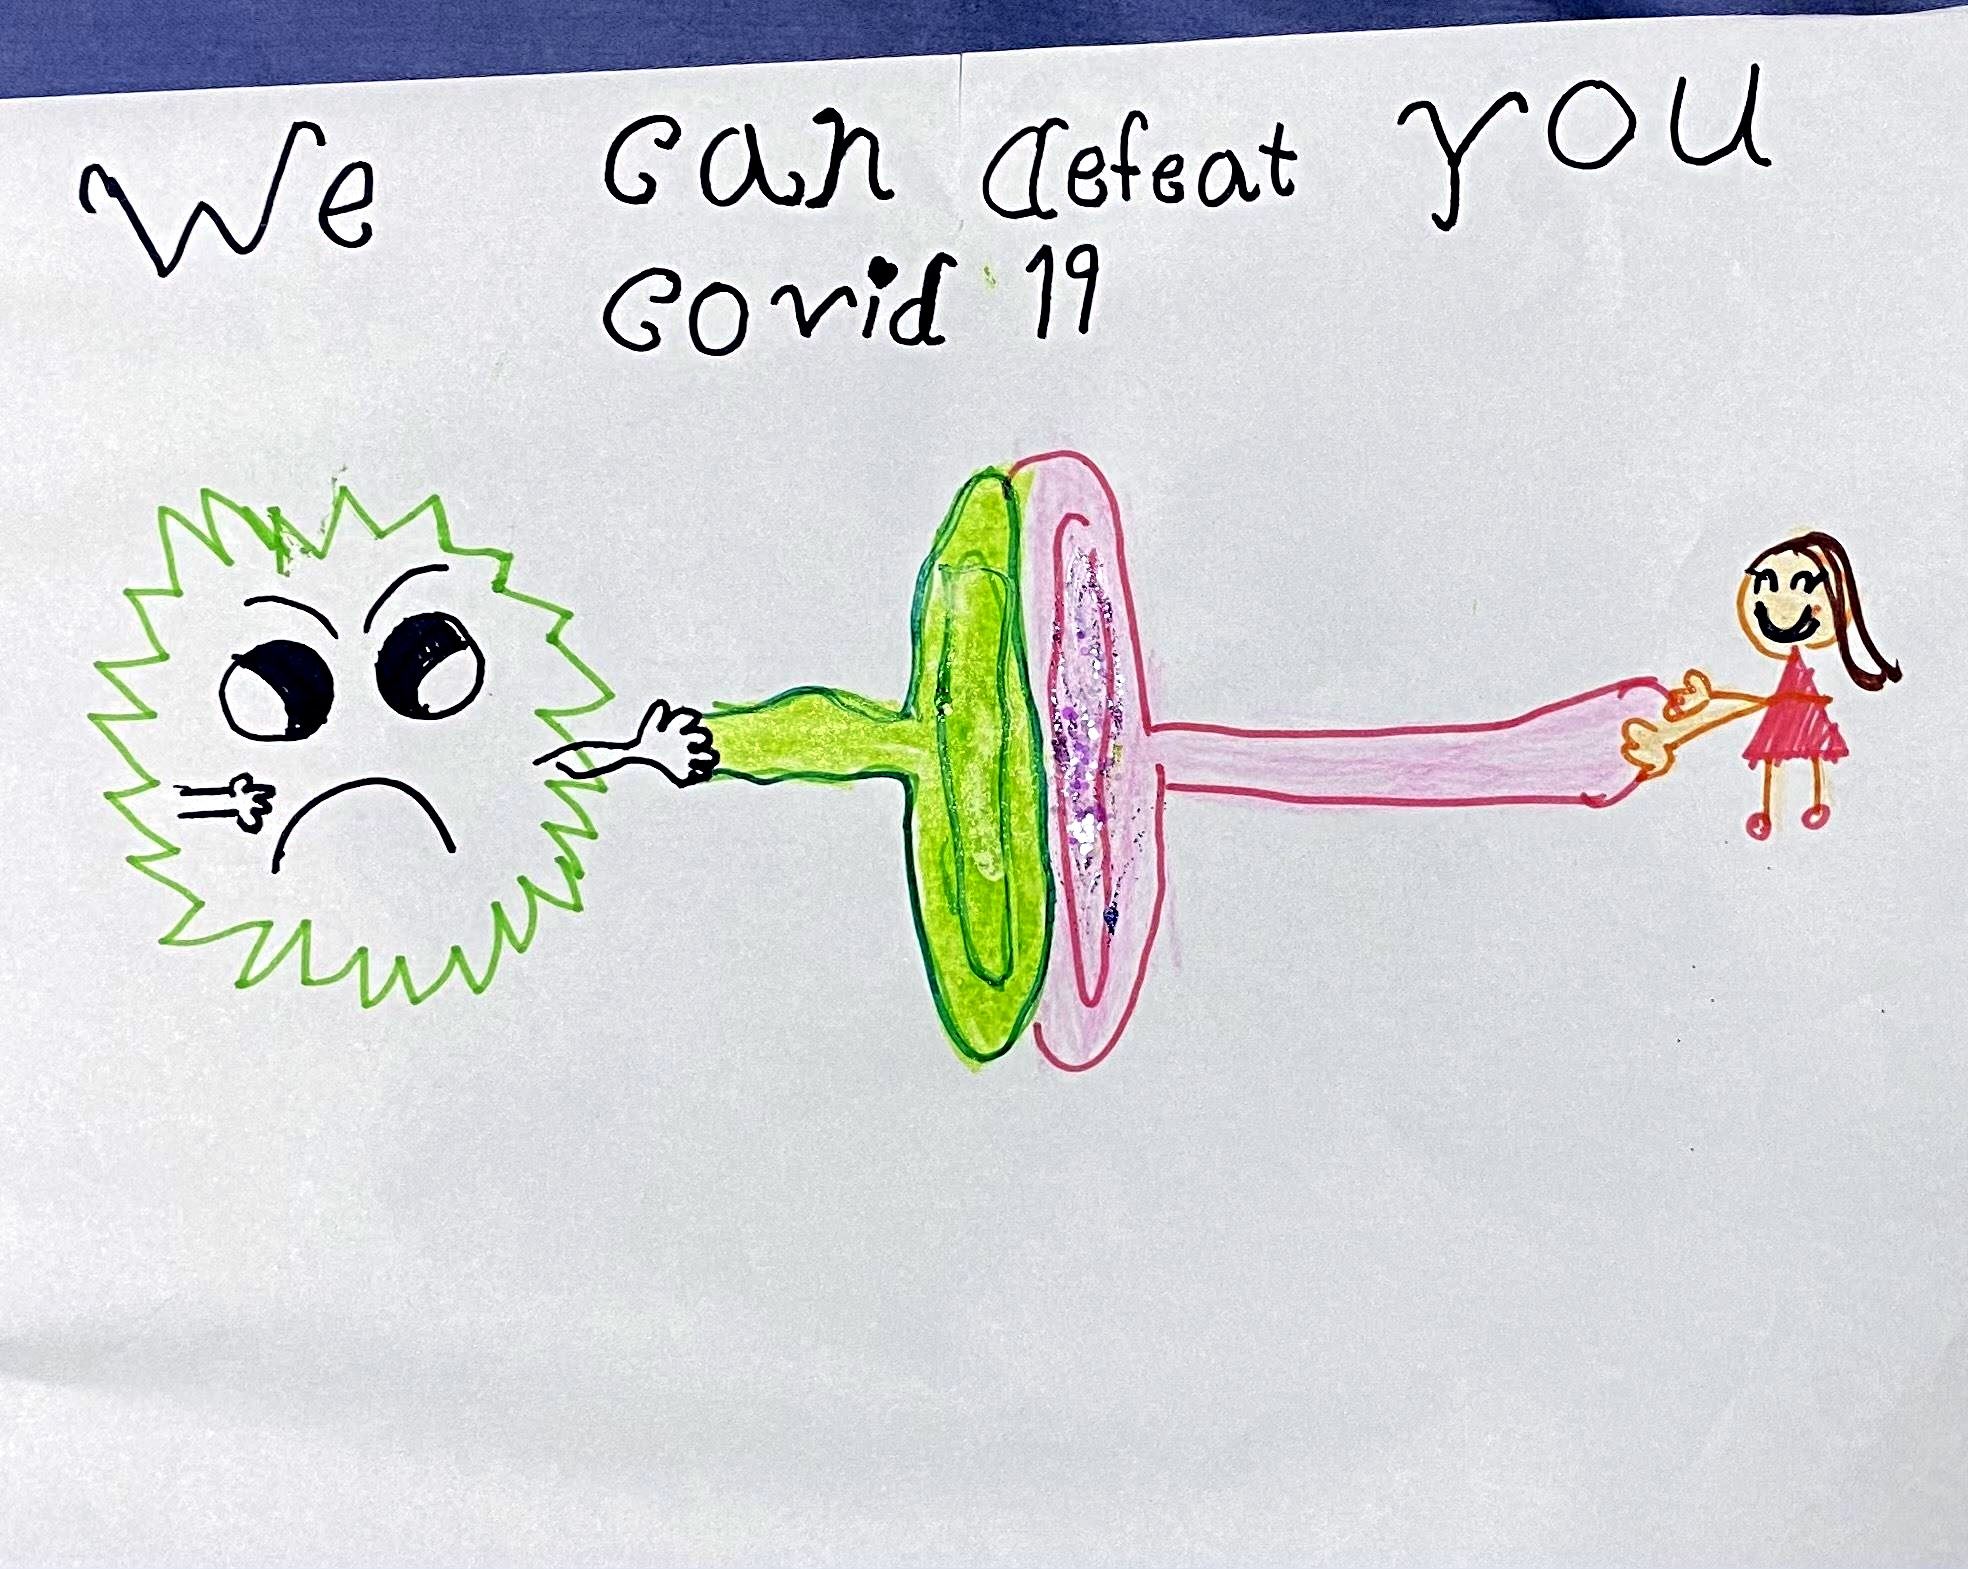 We can defeat you
covid 19